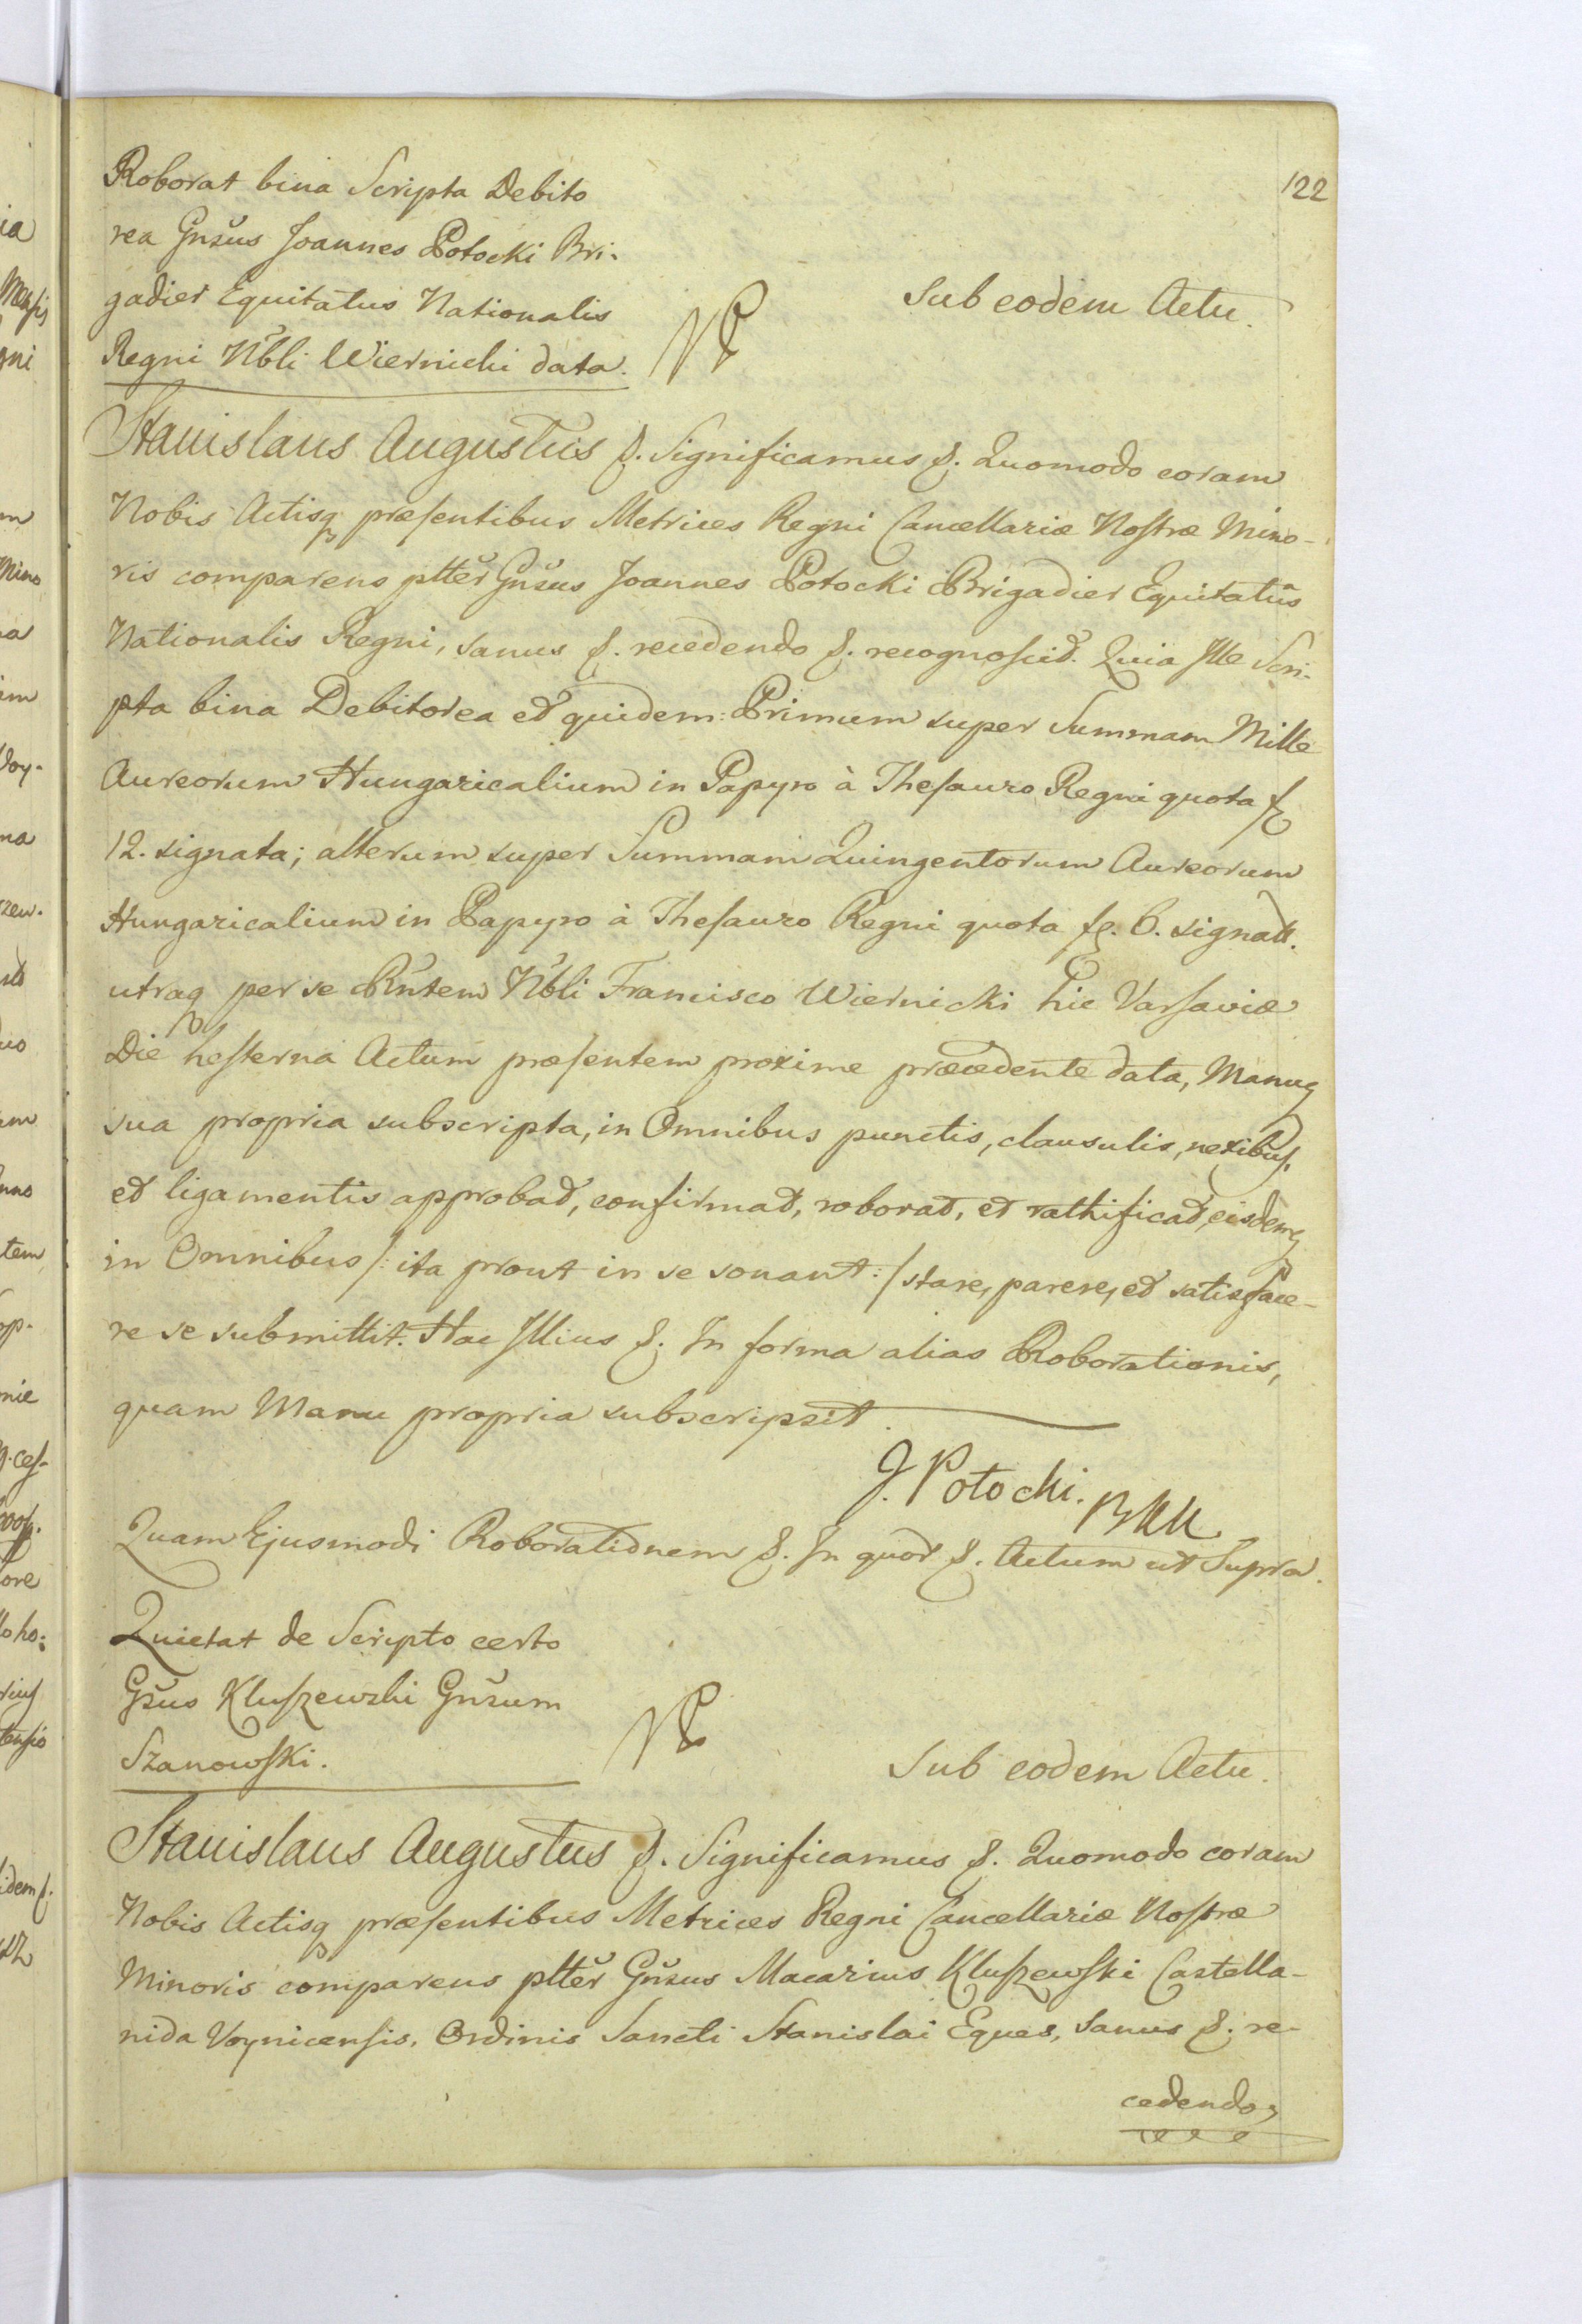 122
Roborat bina Scripta Debito
rea Gnsus Joannes Potocki Bri-
gadier Equitatus Nationalis
Regni Nbli Wiernicki data.
Sub eodem Actu.
Stanislaus Augustus &. Significamus &. Quomodo coram
Nobis Actisq præsentibus Metrices Regni Cancellariæ Nostræ Mino-
ris comparens pltter Gnsus Joannes Potocki Brigadier Equitatus
Nationalis Regni, sanus &. recedendo &. recognoscit. Quia Ille Scri-
pta bina Debitorea et quidem: Primum super Summam Mille
Aureorum Hungaricalium in Papyro à Thesauro Regni quota fl
12. signata; alterum super Summam Quingentorum Aureorum
Hungaricalium in Papyro à Thesauro Regni quota fl. 6. signatt.
utraq per se Rntem Nbli Francisco Wiernicki hic Varsaviæ
Die hesterna Actum præsentem proxime præcedente data, Manuq
sua propria subscripta, in Omnibus punctis, clausulis, nexibus,
et ligamentis approbat, confirmat, roborat, et rathificat, eisdemq
in Omnibus /: ita prout in se sonant :/ stare, parere, et satisface-
re se submittit. Hac Illius &. In forma alias Roborationis,
quam Manu propria subscripsit.
J. Potocki. BKK
Quam Ejusmodi Roborationem &. In quor &. Actum ut Supra.
Quietat de Scripto certo
Gsus Kluszewski Gnsum
Szanowski.
Sub eodem Actu.
Stanislaus Augustus &. Significamus &. Quomodo coram
Nobis Actisq præsentibus Metrices Regni Cancellariæ Nostræ
Minoris comparens pltter Gnsus Macarius Kluszewski Castella-
nida Voynicensis, Ordinis Sancti Stanislai Eques, sanus &. re-
cedendo,